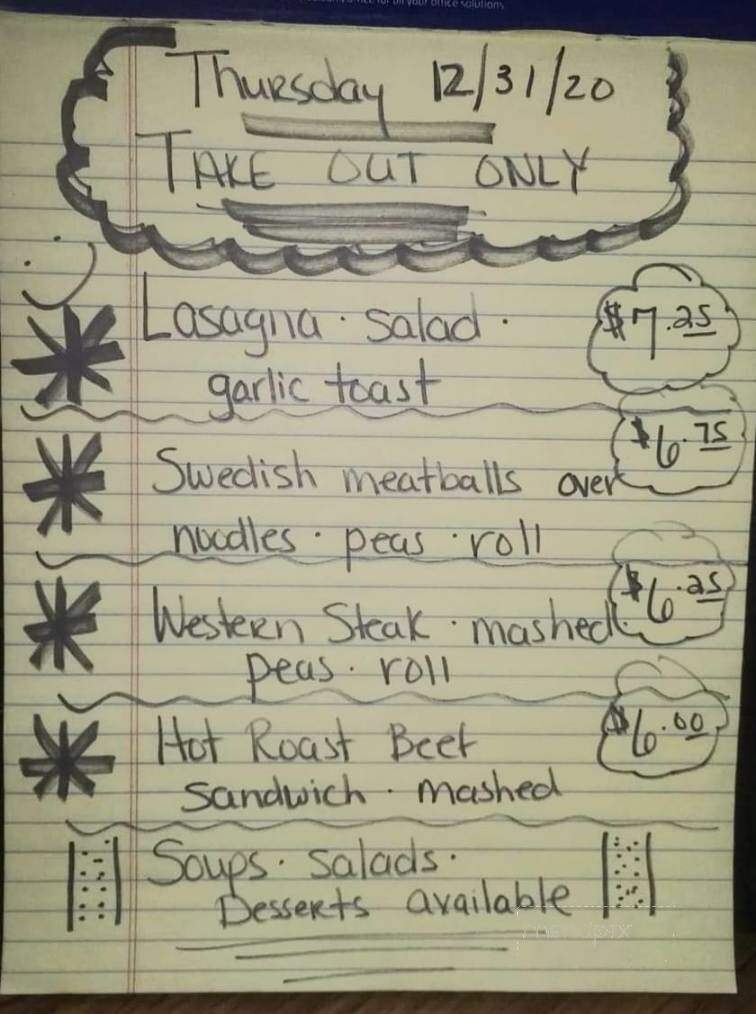 for all your office solutions
Thursday 12/31/20
TAKE OUT ONLY
Lasagna · salad · $7.25
garlic toast
$6.75
Swedish meatballs over
noodles · peas · roll
$6.25
Western Steak · mashed
peas · roll
$6.00
Hot Roast Beef
sandwich · mashed
Soups · salads ·
Desserts available